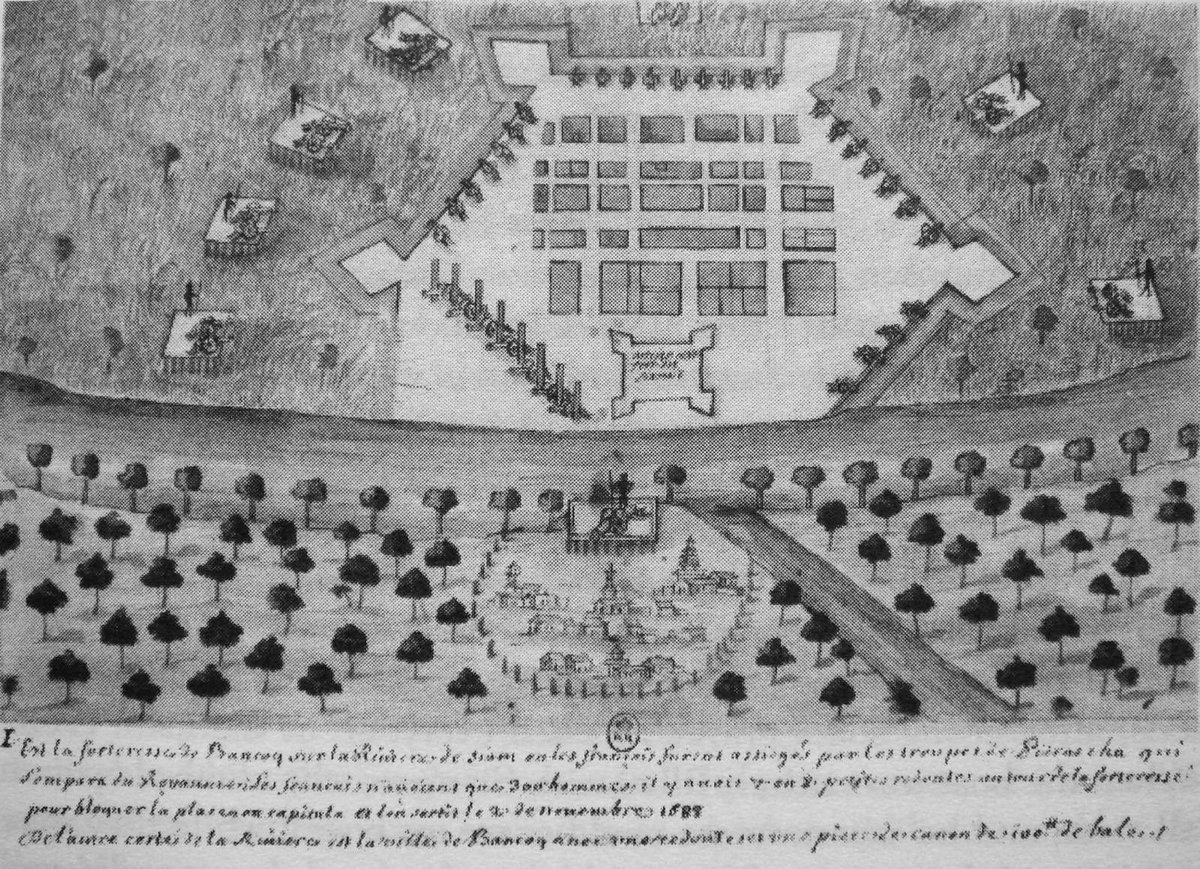 Est la forteresse de Bancoq sur la Riviere de siam ou les françois furent assiegés par les troupes de Pitrascha qui
s'empara du Royaume les françois n'avoient que 300 hommes, il y avoit petites redoutes autour de la forteresse
pour bloquer la place on capitula et l'on sortit le 2 de novembre 1688
De l'autre costé de la Riviere est la ville de Bancoq avec une redoute et une piece de canon de 100 de bale